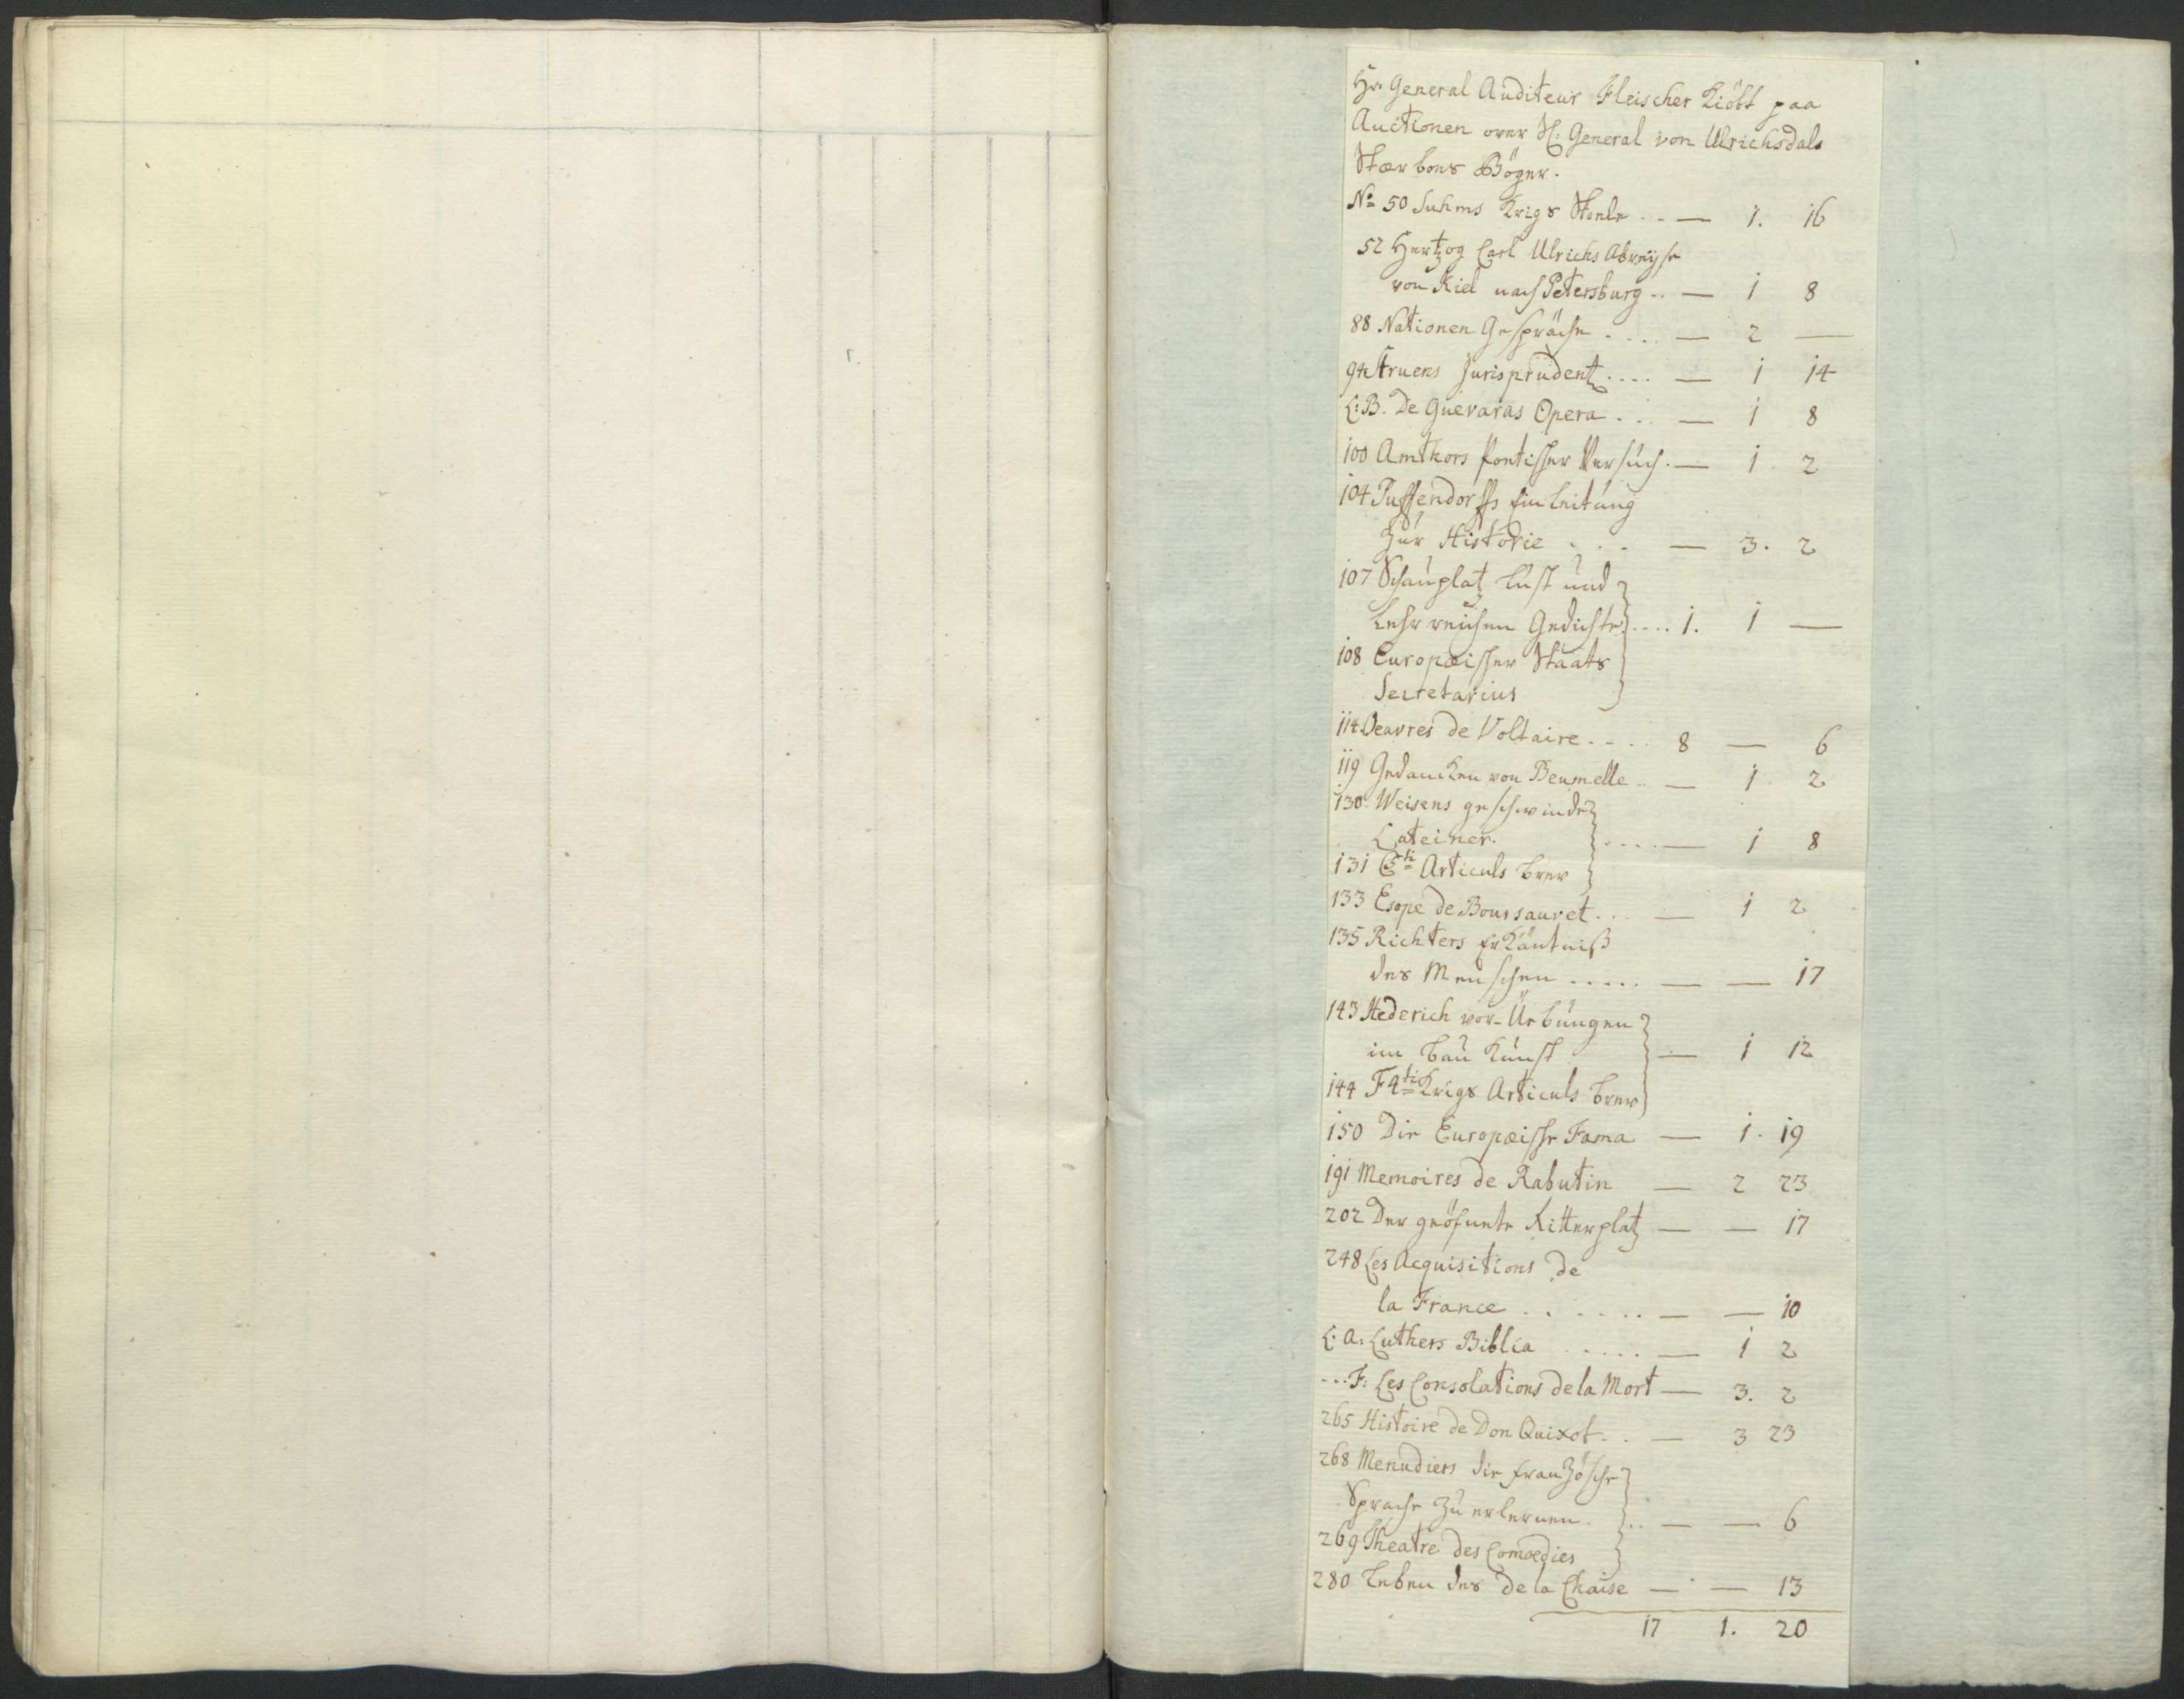 Hr: General Auditeur Fleischer Kiöbt paa
Auctionen over H: General von Ulrichsdals
Stærboes Bøger.
No 50 Suhms Krigs Skole .. — 1. 16
52 Hertzog Carl Ulrichs Abreyse
von Kiel nach Petersburg .. — 1 8
88 Nationen Gespräche .... — 2 —
94 Struens Jurisprudentz .... — 1 14
L: B. De Guevaras Opera ... — 1 8
100 Amthors Poetischer Versuch. — 1. 2
104 Puffendorffs Einleitung
Zur Historie ... — 3. 2
107 Schauplatz lust und
Lehrreichen Gedichte .... 1. 1 —
108 Europæischer Staats
Secretarius
114 Oeuvres de Voltaire .... 8 — 6
119 Gedancken von Beumelle .. — 1. 2
130 Weisens geschwinde
Lateiner. .... — 1 8
131 C 5ti Articuls brev
133 Esope de Boursauret ... — 1 2
135 Richters Erkäntniß
des Menschen ..... — — 17
143 Hederich vor-Ürbungen
im bau Kunst — 1 12
144 F 4ti Krigs Articuls brev
150 Die Europæische Fama — 1. 19
191 Memoires de Rabutin — 2 23
202 Der geöfnete Ritterplatz — — 17
248 Les Acquisitions de
la France ...... — — 10
L: a: Luthers Biblia ..... — 1 2
... F: Les Consolations de la Mort — 3. 2
265 Histoire de Don Quixot .. — 3 23
268 Menudiers die Französche
Sprache Zu erlernen. .. — — 6
269 Theatre des Comoedies
280 Leben des de la Chaise — — 13
17 1. 20